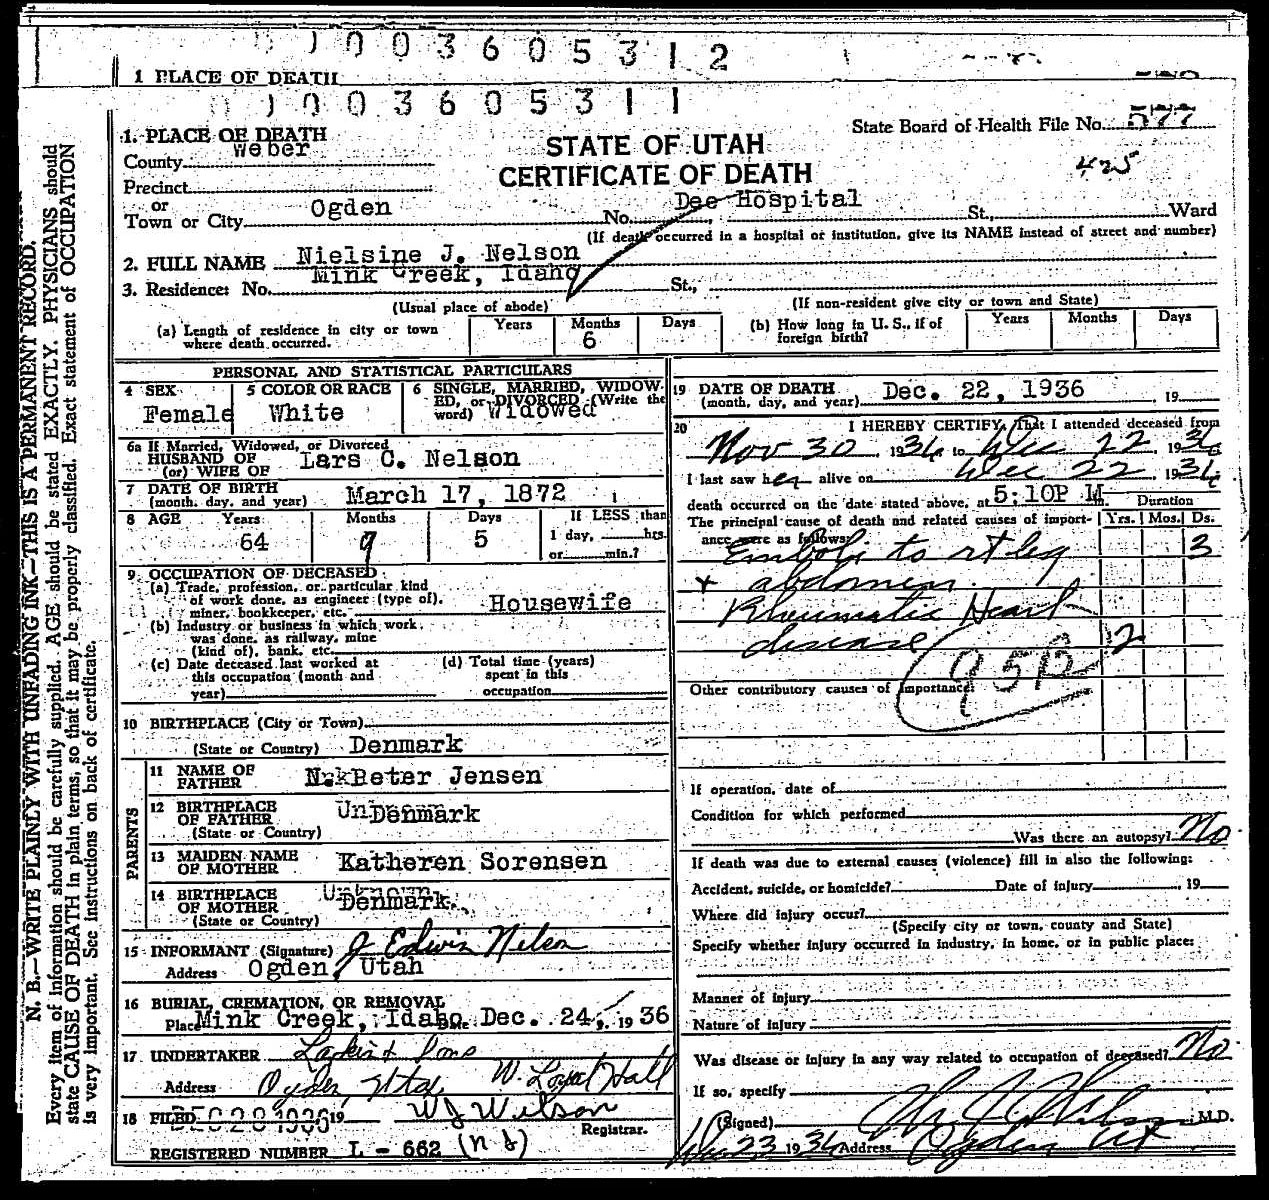 1 0 0 3 6 0 5 3 1 2
1 PLACE OF DEATH
1 0 0 3 6 0 5 3 1 1
1. PLACE OF DEATH
County Weber
Precinct
or
Town or City Ogden
STATE OF UTAH
CERTIFICATE OF DEATH
State Board of Health File No. 577
425
No. Dee Hospital St., Ward
(If death occurred in a hospital or institution, give its NAME instead of street and number)
2. FULL NAME Nielsine J. Nelson
3. Residence: No. Mink Creek, Idaho St.,
(Usual place of abode) (If non-resident give city or town and State)
(a) Length of residence in city or town where death occurred. Years Months 6 Days
(b) How long in U. S., if of foreign birth? Years Months Days
PERSONAL AND STATISTICAL PARTICULARS
4 SEX Female
5 COLOR OR RACE White
6 SINGLE, MARRIED, WIDOWED, or DIVORCED (Write the word) Widowed
6a If Married, Widowed, or Divorced
HUSBAND OF
(or) WIFE OF Lars C. Nelson
7 DATE OF BIRTH
(month, day, and year) March 17, 1872
8 AGE Years 64 Months 9 Days 5 If LESS than 1 day, hrs. or min.?
9 OCCUPATION OF DECEASED
(a) Trade, profession, or particular kind
of work done, as engineer (type of),
miner, bookkeeper, etc. Housewife
(b) Industry or business in which work
was done, as railway, mine
(kind of), bank, etc.
(c) Date deceased last worked at
this occupation (month and
year)
(d) Total time (years)
spent in this
occupation
10 BIRTHPLACE (City or Town)
(State or Country) Denmark
PARENTS
11 NAME OF
FATHER Peter Jensen
12 BIRTHPLACE
OF FATHER Denmark
(State or Country)
13 MAIDEN NAME
OF MOTHER Katheren Sorensen
14 BIRTHPLACE
OF MOTHER Unknown Denmark.
(State or Country)
15 INFORMANT (Signature) J Edwin Nelson
Address Ogden, Utah
16 BURIAL, CREMATION, OR REMOVAL
Place Mink Creek, Idaho Date Dec. 24, 1936
17 UNDERTAKER Larkin & Sons
Address Ogden, Utah W. Loyal Hall
18 FILED DEC 28 1936 19 W J Wilson
Registrar.
REGISTERED NUMBER L - 662 (N J)
19 DATE OF DEATH
(month, day, and year) Dec. 22, 1936, 19
20 I HEREBY CERTIFY, That I attended deceased from
Nov 30 1936, to Dec 22, 1936
I last saw her alive on Dec 22, 1936
death occurred on the date stated above, at 5:10P M. Duration
The principal cause of death and related causes of importance were as follows: Yrs. Mos. Ds.
Emboli to rt leg 3
+ abdomen
Rheumatic Heart
disease 2
95B
Other contributory causes of importance:
If operation, date of
Condition for which performed
Was there an autopsy? No
If death was due to external causes (violence) fill in also the following:
Accident, suicide, or homicide? Date of injury , 19
Where did injury occur?
(Specify city or town, county and State)
Specify whether injury occurred in industry, in home, or in public place:
Manner of injury
Nature of injury
Was disease or injury in any way related to occupation of deceased? No
If so, specify
(Signed) M.D.
Dec 23 1936 Address Ogden Ut
N. B.—WRITE PLAINLY WITH UNFADING INK—THIS IS A PERMANENT RECORD.
Every item of information should be carefully supplied. AGE should be stated EXACTLY. PHYSICIANS should
state CAUSE OF DEATH in plain terms, so that it may be properly classified. Exact statement of OCCUPATION
is very important. See instructions on back of certificate.